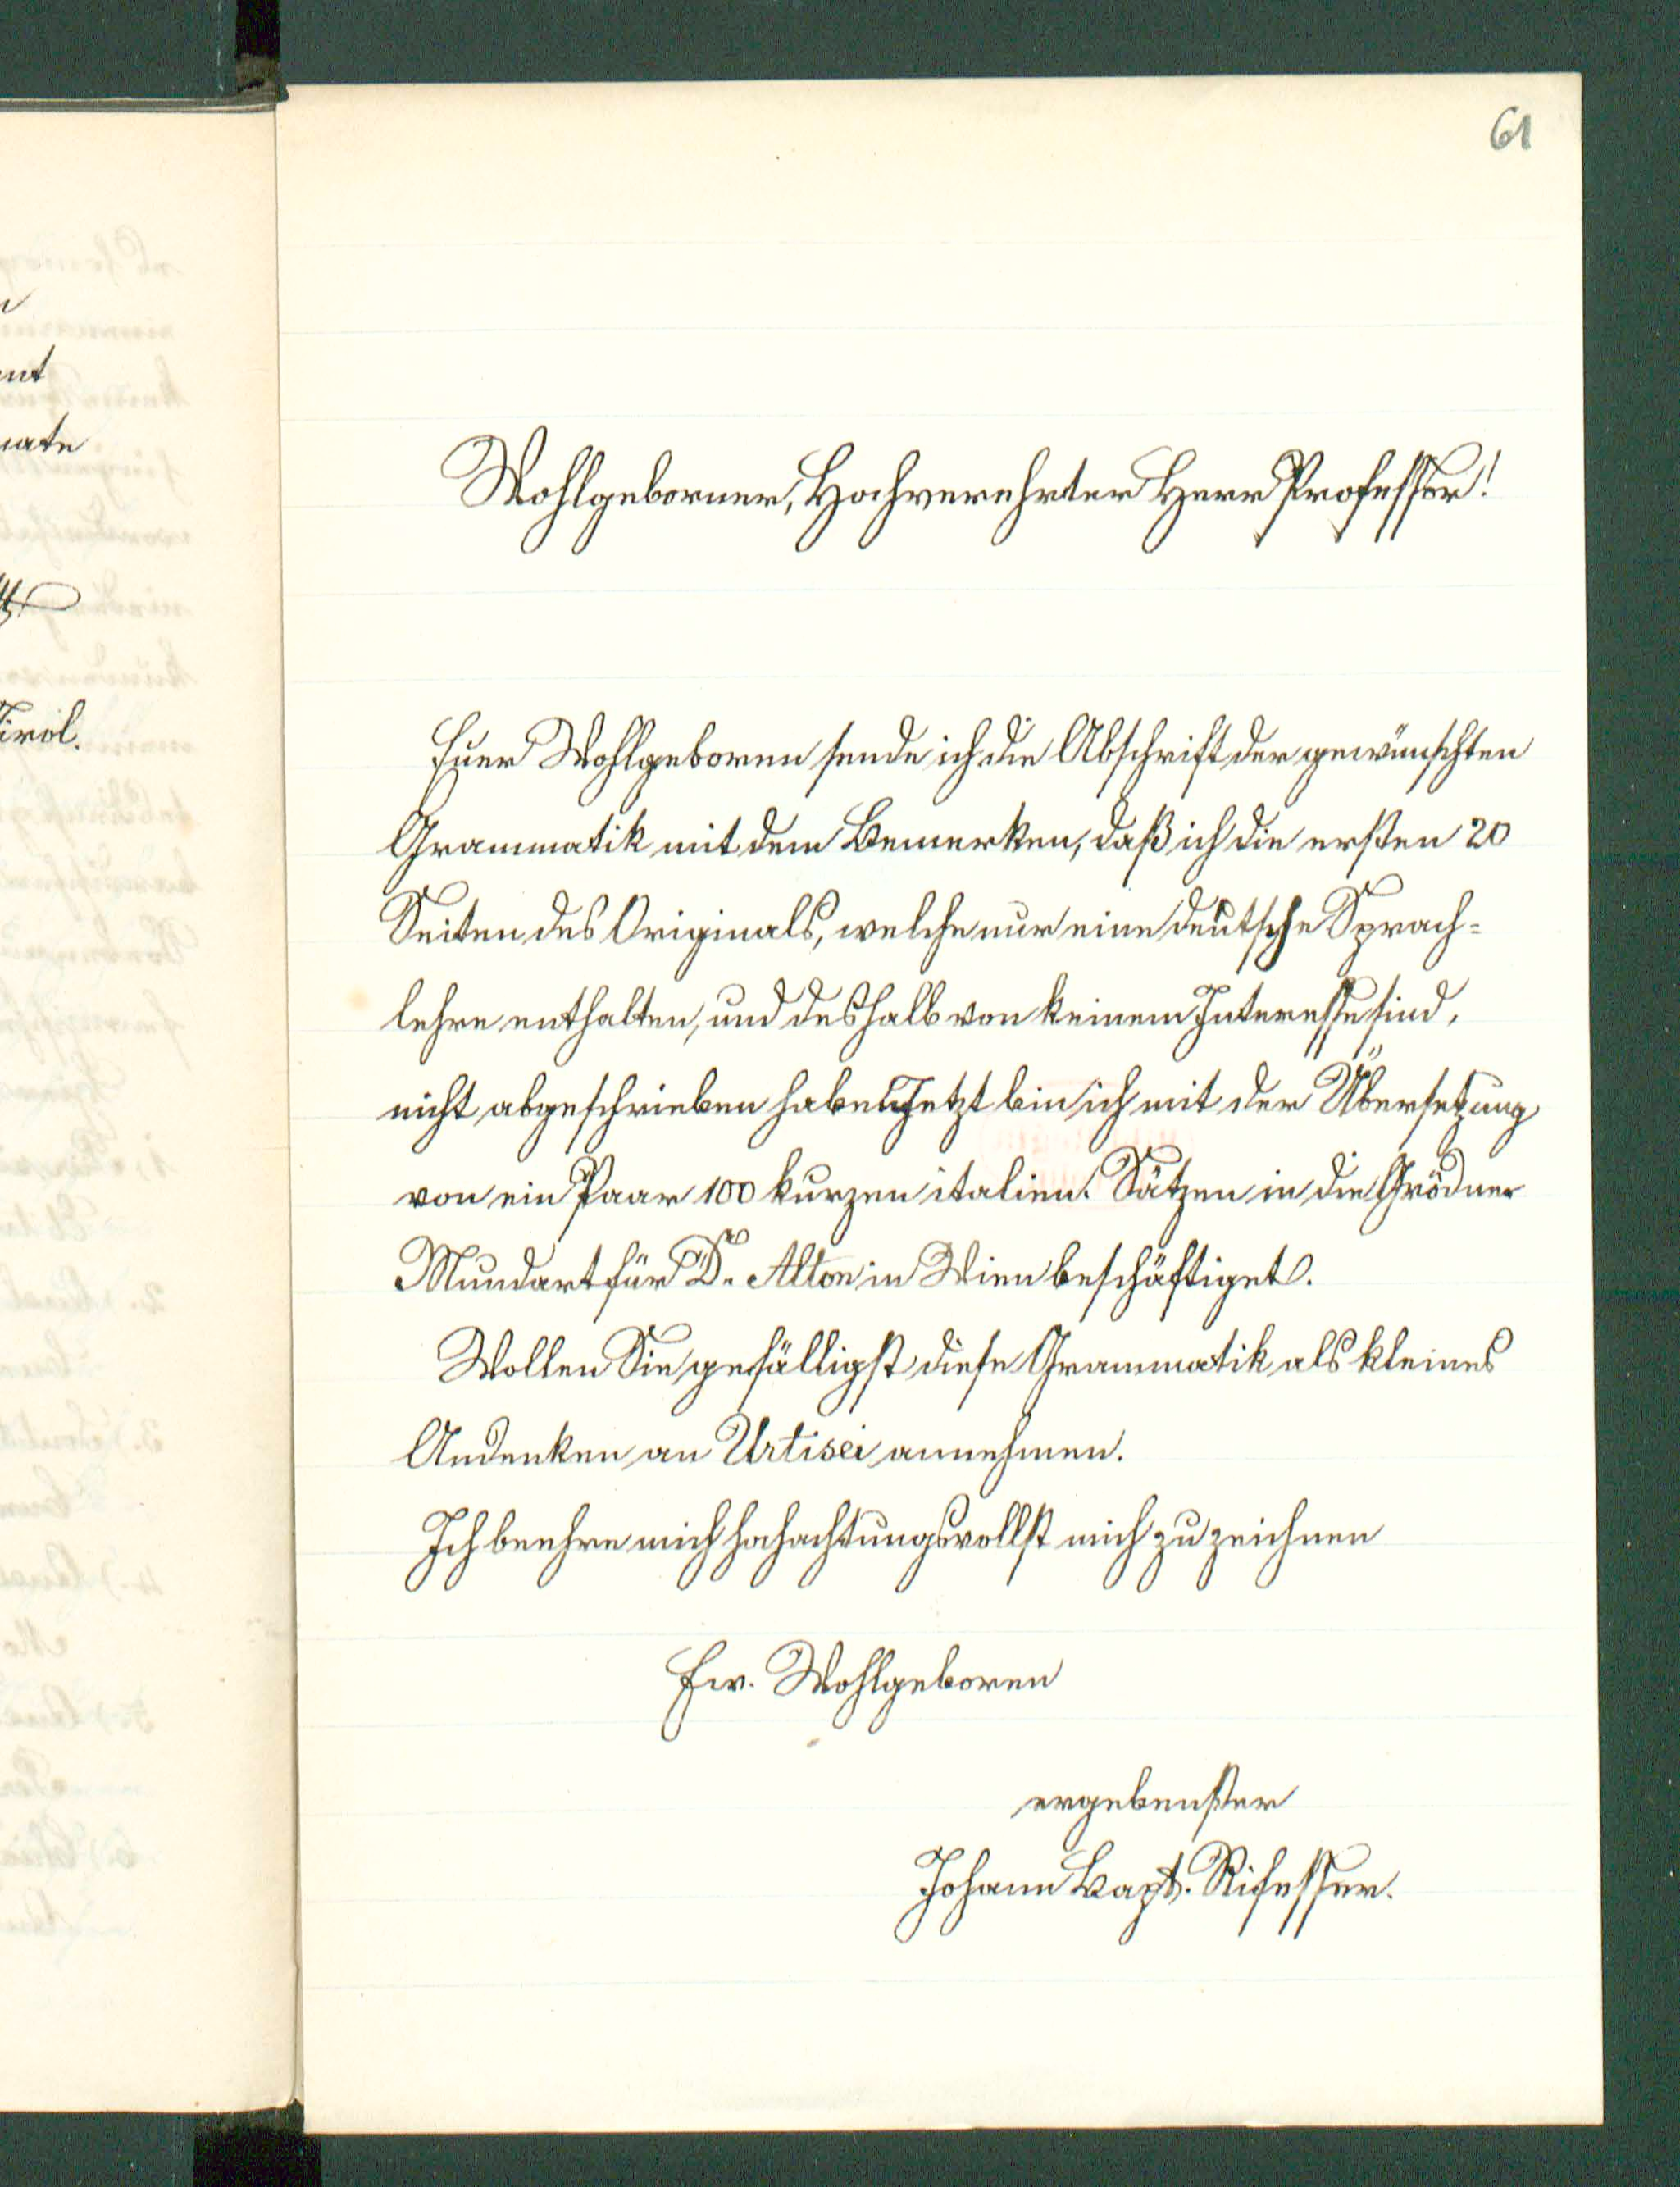 61
ant
Tirol.
Wohlgeborner, Hochverehrter Herr Professor!
Euer Wohlgeboren sende ich die Abschrift der gewünschten
Grammatik mit dem Bemerken, daß ich die ersten 20
Seiten des Originals, welche nur eine deutsche Sprach-
lehre enthalten, und deshalb von keinem Interesse sind,
nicht abgeschrieben habe. Jetzt bin ich mit der Übersetzung
von ein Paar 100 kurzen italien. Sätzen in die Grödner
Mundart für Dr. Alton in Wien beschäftiget.
Wollen Sie gefälligst diese Grammatik als kleines
Andenken an Urtisei annehmen.
Ich beehre mich hochachtungsvollst mich zu zeichnen
Ew. Wohlgeboren
ergebenster
Johann Bapt. Rifesser.